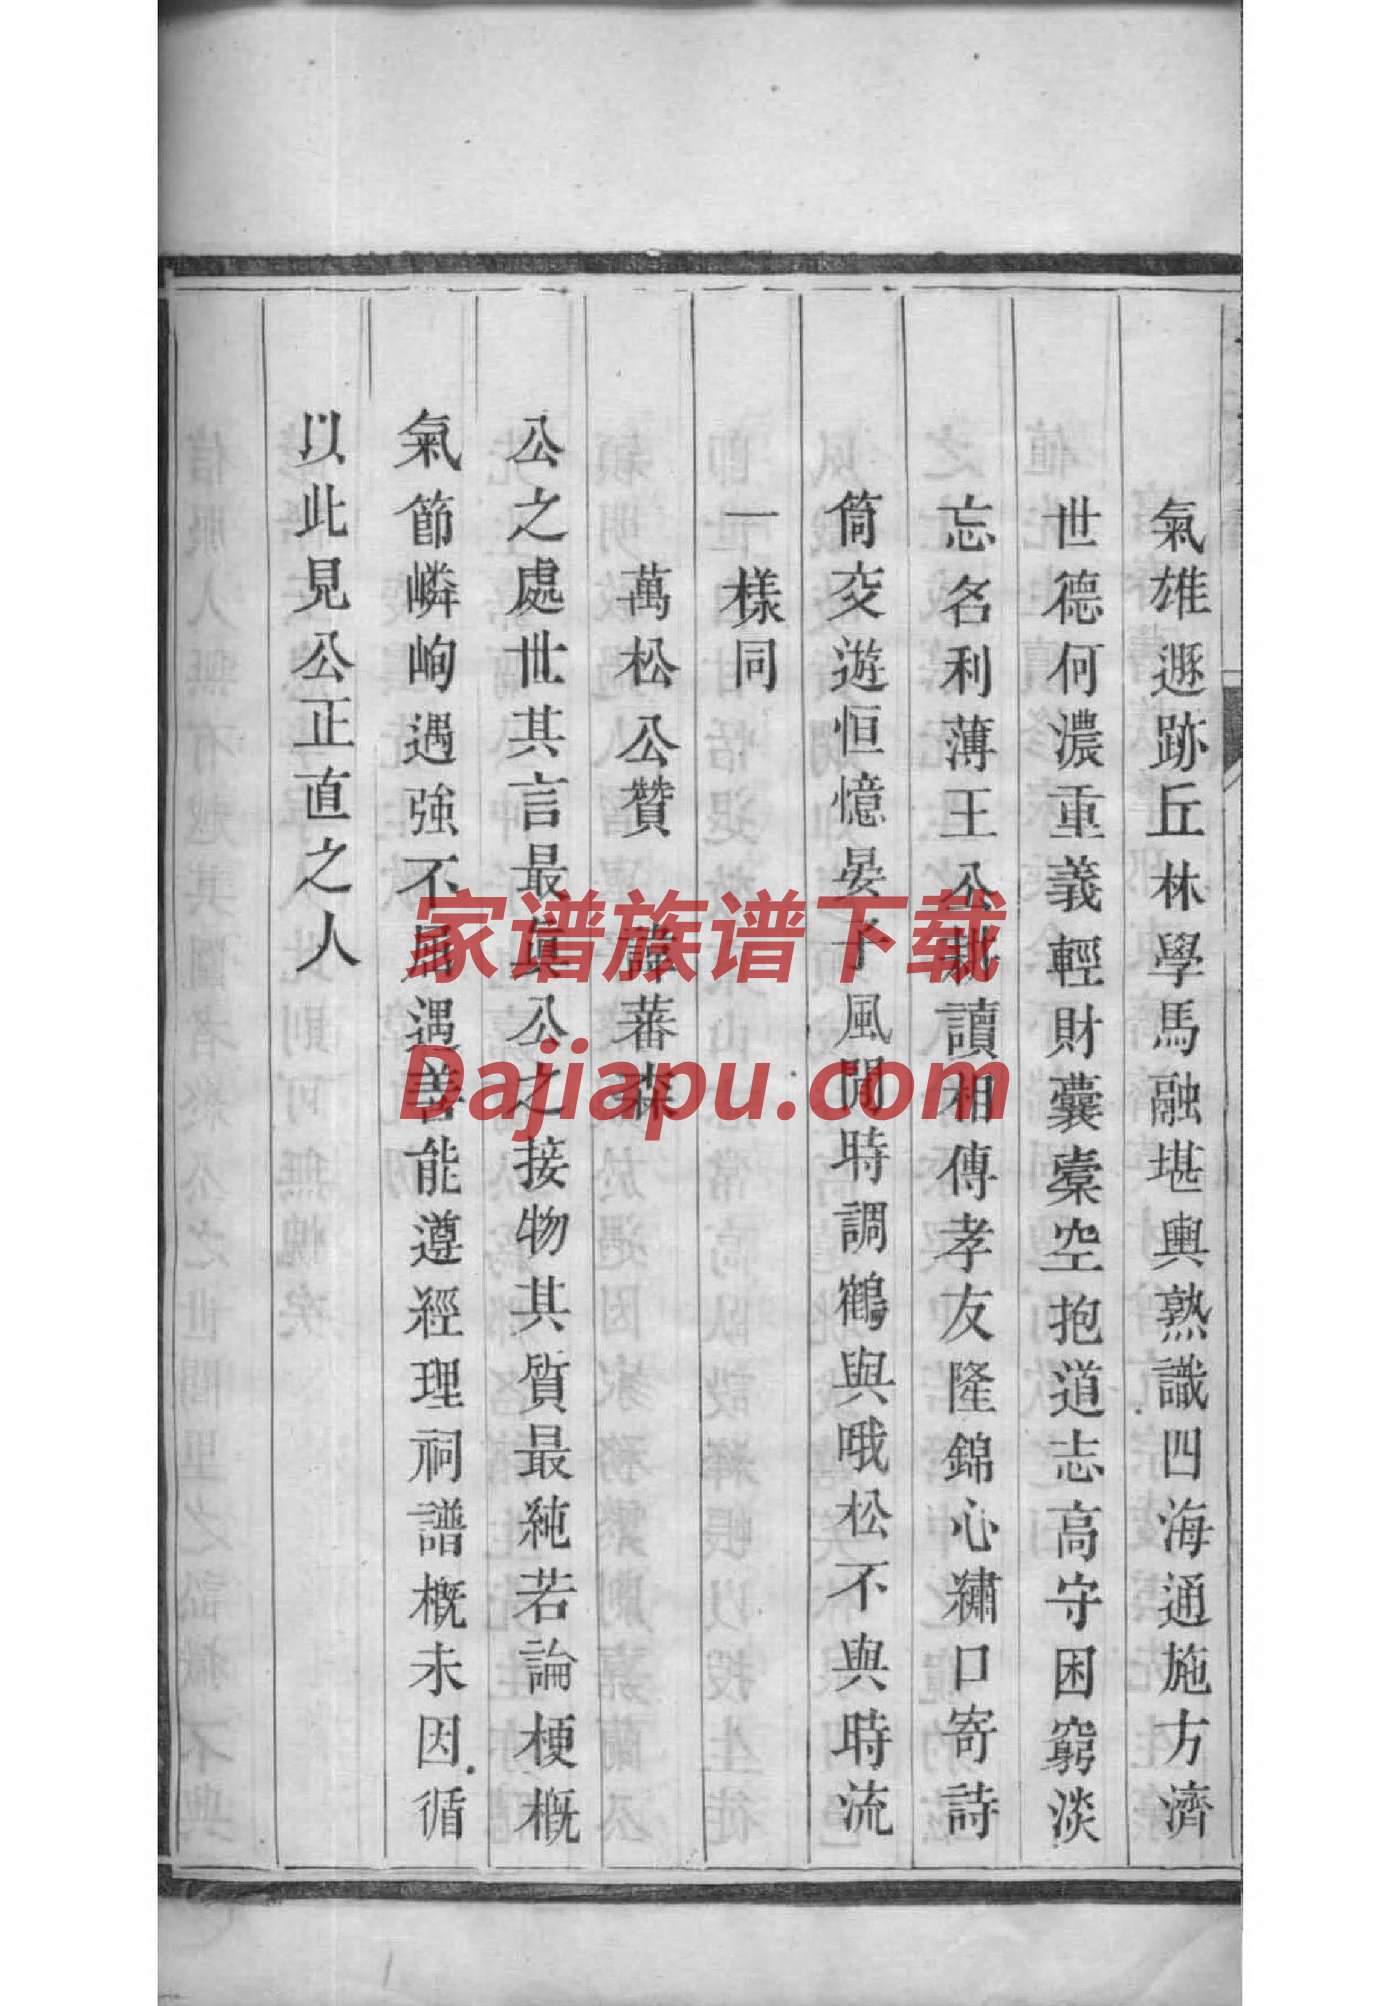 氣雄遯跡丘林學馬融堪輿熟識四海通施方濟
世德何濃重義輕財囊橐空抱道志高守困窮淡
忘名利薄王公耕讀相傳孝友隆錦心繡口寄詩
筒交遊恒憶晏子風閒時調鶴與哦松不與時流
一樣同
萬松公贊　諱蕃森
公之處世其言最眞公之接物其質最純若論梗概
氣節嶙峋遇強不屈遇善能遵經理祠譜概未因循
以此見公正直之人
家谱族谱下载
Dajiapu.com